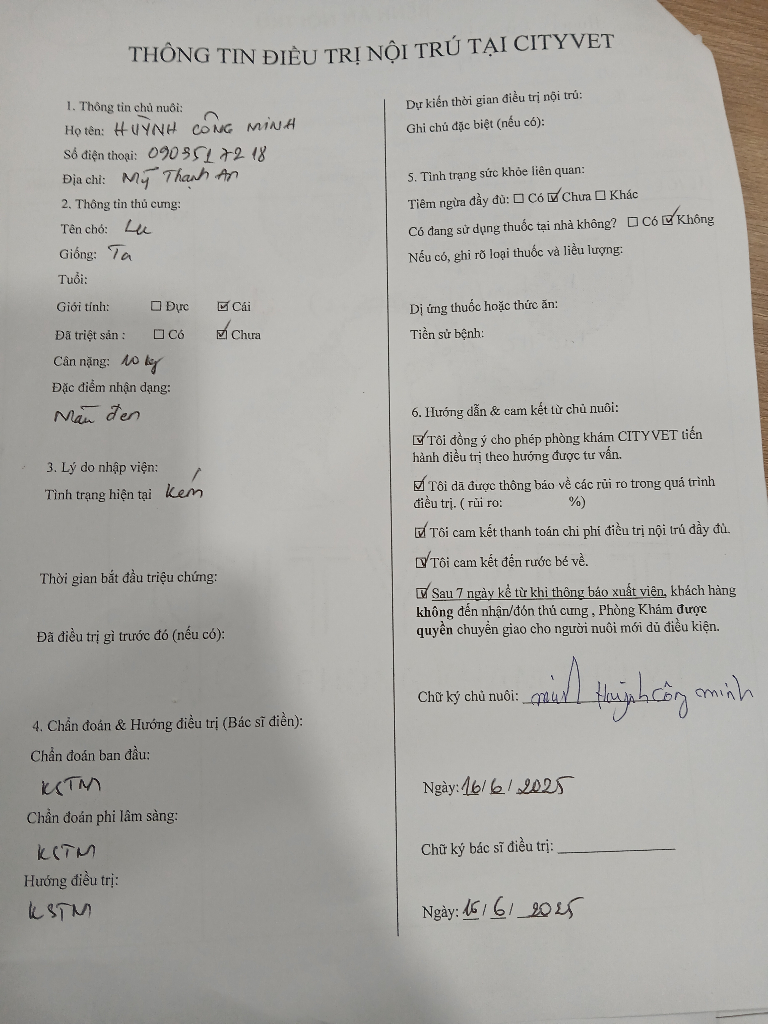 THÔNG TIN ĐIỀU TRỊ NỘI TRÚ TẠI CITYVET
1. Thông tin chủ nuôi:
Họ tên: HUỲNH CÔNG MINH
Số điện thoại: 0903517218
Địa chỉ: Mỹ Thạnh An
2. Thông tin thú cưng:
Tên chó: Lu
Giống: Ta
Tuổi:
Giới tính: ☐ Đực ☑ Cái
Đã triệt sản : ☐ Có ☑ Chưa
Cân nặng: 10 kg
Đặc điểm nhận dạng:
Màu đen
3. Lý do nhập viện:
Tình trạng hiện tại kém
Thời gian bắt đầu triệu chứng:
Đã điều trị gì trước đó (nếu có):
4. Chẩn đoán & Hướng điều trị (Bác sĩ điền):
Chẩn đoán ban đầu:
KSTM
Chẩn đoán phi lâm sàng:
KSTM
Hướng điều trị:
KSTM
Dự kiến thời gian điều trị nội trú:
Ghi chú đặc biệt (nếu có):
5. Tình trạng sức khỏe liên quan:
Tiêm ngừa đầy đủ: ☐ Có ☑ Chưa ☐ Khác
Có đang sử dụng thuốc tại nhà không? ☐ Có ☑ Không
Nếu có, ghi rõ loại thuốc và liều lượng:
Dị ứng thuốc hoặc thức ăn:
Tiền sử bệnh:
6. Hướng dẫn & cam kết từ chủ nuôi:
☑ Tôi đồng ý cho phép phòng khám CITYVET tiến
hành điều trị theo hướng được tư vấn.
☑ Tôi đã được thông báo về các rủi ro trong quá trình
điều trị. ( rủi ro: %)
☑ Tôi cam kết thanh toán chi phí điều trị nội trú đầy đủ.
☑ Tôi cam kết đến rước bé về.
☑ Sau 7 ngày kể từ khi thông báo xuất viện, khách hàng
không đến nhận/đón thú cưng , Phòng Khám được
quyền chuyển giao cho người nuôi mới đủ điều kiện.
Chữ ký chủ nuôi: Huỳnh Công minh
Ngày: 16/ 6 / 2025
Chữ ký bác sĩ điều trị:
Ngày: 16 / 6 / 2025